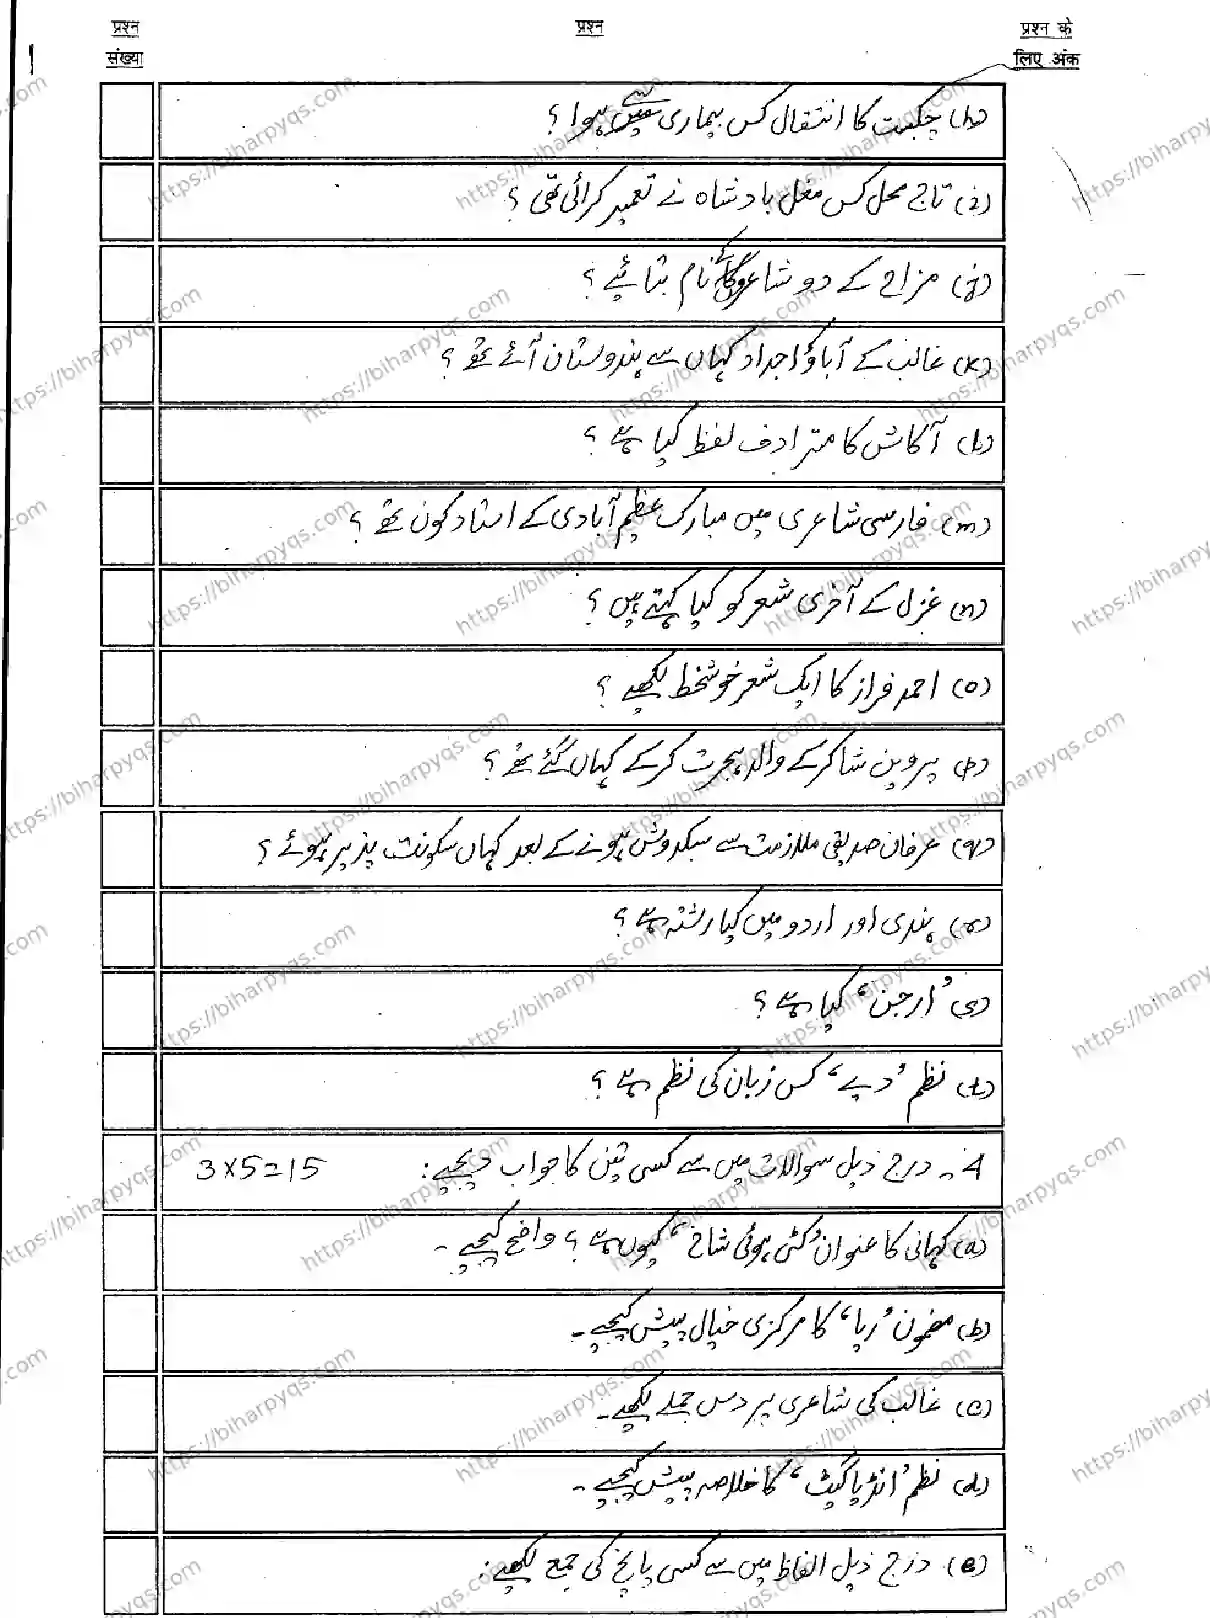 प्रश्न संख्या
प्रश्न
प्रश्न के लिए अंक
(h) چکبست کا انتقال کس بیماری سے ہوا ؟
(i) تاج محل کس مغل بادشاہ نے تعمیر کرائی تھی ؟
(j) مزاح کے دو شاعروں کے نام بتائیے ؟
(k) غالب کے آباؤ اجداد کہاں سے ہندوستان آئے تھے ؟
(l) آکاش کا مترادف لفظ کیا ہے ؟
(m) فارسی شاعری میں مبارک عظیم آبادی کے استاد کون تھے ؟
(n) غزل کے آخری شعر کو کیا کہتے ہیں ؟
(o) احمد فراز کا ایک شعر خوشخط لکھیے ؟
(p) پروین شاکر کے والد ہجرت کرکے کہاں گئے تھے ؟
(q) عرفان صدیقی ملازمت سے سبکدوش ہونے کے بعد کہاں سکونت پذیر ہوئے ؟
(r) ہندی اور اردو میں کیا رشتہ ہے ؟
(s) 'ارجن' کیا ہے ؟
(t) نظم 'دیے' کس زبان کی نظم ہے ؟
4۔ درج ذیل سوالات میں سے کسی تین کا جواب دیجیے : 3×5=15
(a) کہانی کا عنوان 'کٹی ہوئی شاخ' کیوں ہے ؟ واضح کیجیے ۔
(b) مضمون 'ریا' کا مرکزی خیال پیش کیجیے ۔
(c) غالب کی شاعری پر دس جملے لکھیے ۔
(d) نظم 'انڈیا گیٹ' کا خلاصہ پیش کیجیے ۔
(e) درج ذیل الفاظ میں سے کسی پانچ کی جمع لکھیے :
https://biharpyqs.com